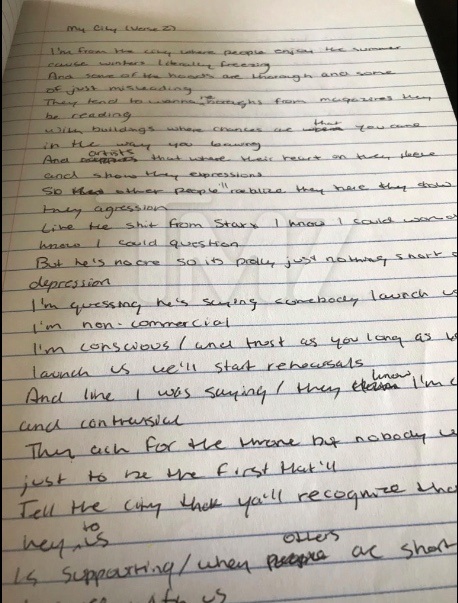 My City (Verse 2)
I'm from the city where people enjoy the summer
cause winters literally freezing
And some of the hearts are thorough and some
of just misleading
They tend to wanna be from magazines they
be reading
With buildings where chances are that you came
in the way you leaving
And artists that where their heart on they sleeve
and show they expressions
So other people'll realize they here they show
they agression
Like the shit from Starx I know I could
know I could question
But he's no cre so its prolly just nothing short
depression
I'm guessing he's saying somebody launch us
I'm non-commercial
I'm conscious / and trust as you long as
launch us we'll start rehearsals
And like I was saying / they know I'm
and contraversial
They ask for the throne but nobody
just to be the first that'll
Tell the city that ya'll recognize
hey to is
Is supporting / when others ac short
us
TMZ